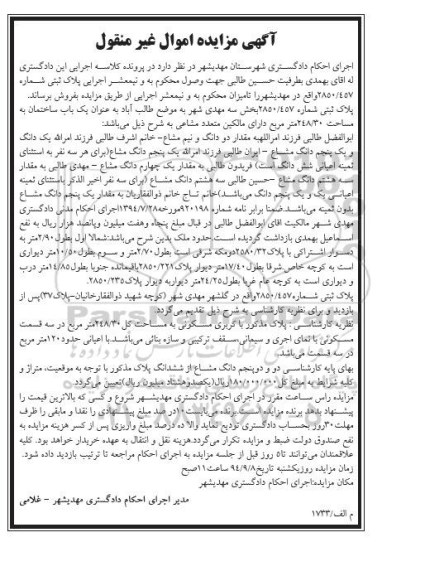 آگهی مزایده اموال غیر منقول
اجرای احکام دادگستری شهرستان مهدیشهر در نظر دارد در پرونده کلاسه اجرایی این دادگستری
له اقای بهمدی بطرفیت حسین طالبی جهت وصول محکوم به و نیمعشر اجرایی پلاک ثبتی شماره
۲۸۵۰/۴۵۷واقع در مهدیشهررا تامیزان محکوم به و نیمعشر اجرایی از طریق مزایده بفروش برساند.
پلاک ثبتی شماره ۲۸۵۰/۴۵۷بخش سه مهدی شهر به موضع طالب آباد به عنوان یک باب ساختمان به
مساحت ۲۴۸/۳۰متر مربع دارای مالکین متعدد مشاعی به شرح ذیل می‌باشد:
ابوالفضل طالبی فرزند امراللهبه مقدار دو دانگ و نیم مشاع- خانم اشرف طالبی فرزند امرالله یک دانگ
و یک پنجم دانگ مشاع – ایران طالبی فرزند امرالله یک پنجم دانگ مشاع(برای هر سه نفر به استثنای
ثمینه اعیانی شش دانگ است) فریدون طالبی به مقدار یک چهارم دانگ مشاع - مهدی طالبی به مقدار
سه هشتم دانگ مشاع –حسین طالبی سه هشتم دانگ مشاع (برای سه نفر اخیر الذکر باستثنای ثمینه
اعیانی یک و یک پنجم دانگ می‌باشد)خانم تاج خانم ذوالفقاریان به مقدار یک پنجم دانگ مشاع
بدون ثمینه می‌باشد.ضمنا برابر نامه شماره ۹۲۰۱۹۸مورخه۱۳۹۴/۷/۲۸اجرای احکام مدنی دادگستری
مهدی شهر مالکیت اقای ابوالفضل طالبی در قبال مبلغ پنجاه وهفت میلیون وپانصد هزار ریال به نفع
اسماعیل بهمدی بازداشت گردیده است.حدود ملک بدین شرح می‌باشد:شمالا اول بطول۲/۹۰متر به
دیوار اشتراکی با پلاک۲۵۸۰/۳۲دومکه شرقی است بطول۲/۷۰متر و سوم بطول۱۰/۵۰متر دیواری
است به کوچه خاص شرقا بطول۱۷/۴۰متر دیوار پلاک۲۸۵۰/۲۲۱باقیمانده جنوبا بطول۱۴/۸۵متر درب
و دیواری است به کوچه عام غربا بطول۲۴/۲۵متر دیواربه دیوار پلاک۲۸۵۰/۲۳۵.
پلاک ثبتی شماره۲۸۵۰/۴۵۷واقع در گلشهر مهدی شهر (کوچه شهید ذوالفقارخانیان-پلاک۳۷)پس از
بازدید و برای نظریه کارشناسی به شرح ذیل تقدیم می‌گردد.
نظریه کارشناسی : پلاک مذکور با کاربری مسکونی به مساحت کل ۲۴۸/۳۰متر مربع در سه قسمت
مسکونی با نمای آجری و سیمانی،سقف ترکیبی و سازه بنائی می‌باشد.با اعیانی حدود۱۲۰متر مربع
در سه قسمت می‌باشد.
بهای پایه کارشناسی دو و دوپنجم دانگ مشاع از ششدانگ پلاک مذکور با توجه به موقعیت، متراژ و
کلیه شرایط به مبلغ کل۱۸۰/۰۰۰/۰۰۰ریال(یکصدوهشتاد میلیون ریال)تعیین می‌گردد
مزایده راس ساعت مقرر در اجرای احکام دادگستری مهدیشهر شروع و کسی که بالاترین قیمت را
پیشنهاد بدهد برنده مزایده است.برنده می‌بایست ۱۰در صد مبلغ پیشنهادی را نقدا و مابقی را ظرف
مهلت۳۰روز بحساب دادگستری تودیع نماید والا ده درصد مبلغ واریزی پس از کسر هزینه مزایده به
نفع صندوق دولت ضبط و مزایده تکرار می‌گردد.هزینه نقل و انتقال به عهده خریدار خواهد بود. کلیه
علاقمندان می‌توانند تا۵ روز قبل از جلسه مزایده به اجرای احکام مراجعه تا ترتیب بازدید داده شود.
زمان مزایده روزیکشنبه تاریخ۹۴/۹/۸ ساعت۱۱صبح
مکان مزایده:اجرای احکام دادگستری مهدیشهر
مدیر اجرای احکام دادگستری مهدیشهر – غلامی
م الف/۱۷۳۳